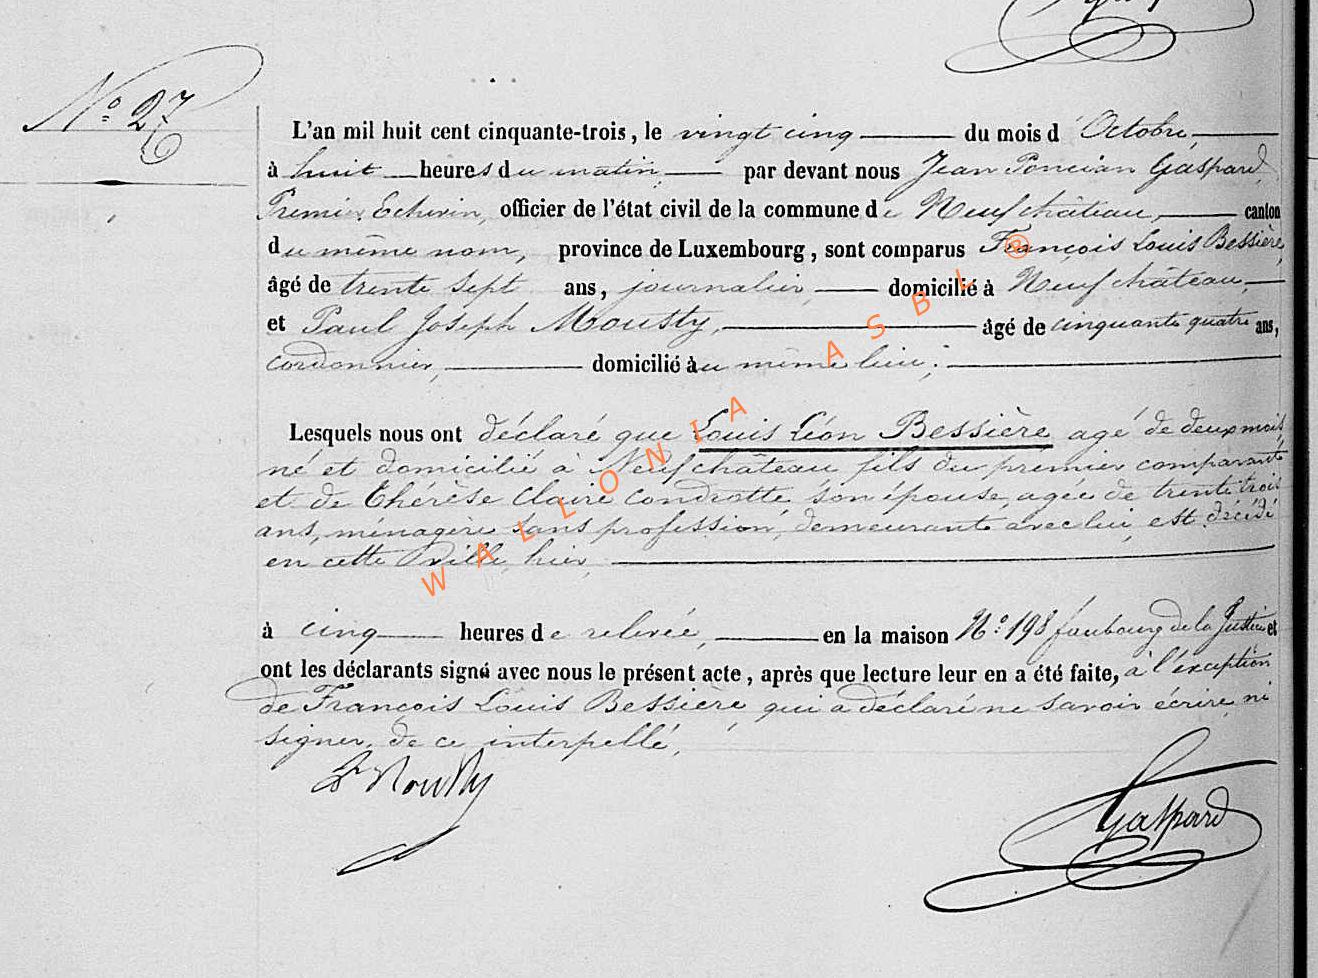 Gaspard
N.° 27
L'an mil huit cent cinquante-trois, le vingt cinq du mois d'Octobre,
à huit heures du matin, par devant nous Jean Poncian Gaspard,
Premier Echevin, officier de l'état civil de la commune de Neufchâteau, canton
du même nom, province de Luxembourg, sont comparus François Louis Bessière,
âgé de trente sept ans, journalier, domicilié à Neufchâteau,
et Paul Joseph Mousty, âgé de cinquante quatre ans,
cordonnier, domicilié au même lieu;
Lesquels nous ont déclaré que Louis Léon Bessière agé de deux mois,
né et domicilié à Neufchâteau fils du premier comparant
et de Thérèse Claire Condrotte, son épouse, agée de trente trois
ans, ménagère sans profession, demeurant avec lui, est décédé
en cette ville, hier,
à cinq heures de relevée, en la maison N.° 198 faubourg de la Justice et
ont les déclarants signé avec nous le présent acte, après que lecture leur en a été faite, à l'exception
de François Louis Bessière, qui a déclaré ne savoir écrire, ni
signer, de ce interpellé,
Mousty
Gaspard
WALLONIA ASBL ®